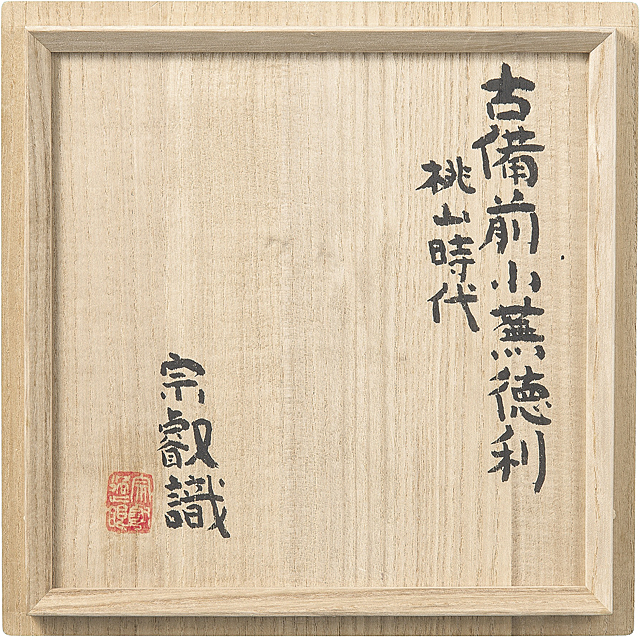 古備前小蕪徳利
桃山時代
宗叡識